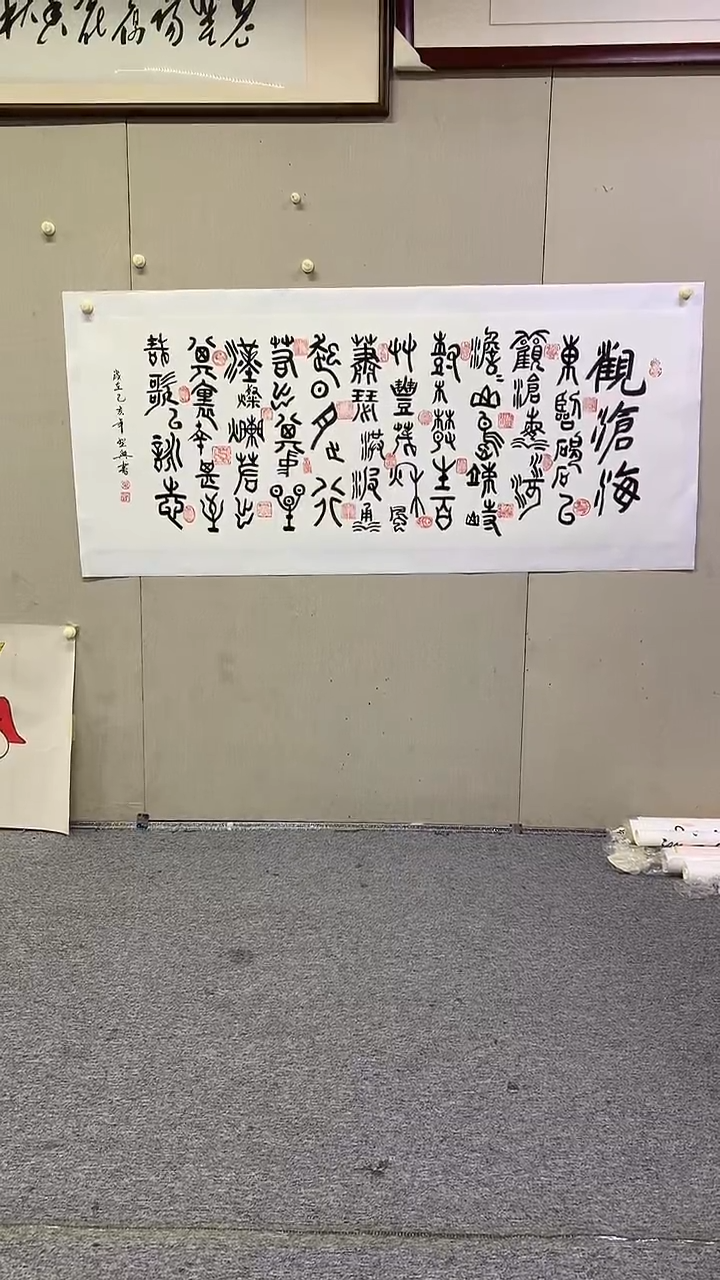 觀滄海
東臨碣石以
觀滄海水何
澹〻山島竦峙
樹木叢生百
草豐茂秋風
蕭瑟洪波涌
起日月之行
若出其中星
漢燦爛若出
其裏幸甚至
哉歌以詠志
歲在 亥年 書